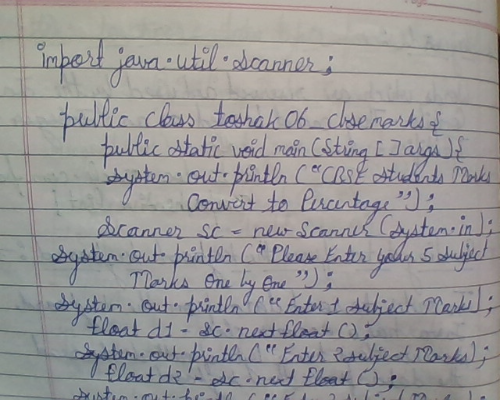 import java.util.scanner;
public class toshak06_cbsemarks{
public static void main(String[]args){
system.out.println("CBSE Students Marks
Convert to Percentage");
Scanner sc = new Scanner(system.in);
system.out.println("Please Enter your 5 subject
Marks One by One");
system.out.println("Enter 1 subject Marks);
float d1 - sc.next float();
system.out.println("Enter 2 subject Marks);
float d2 - sc.next float();
system.out.println("Enter